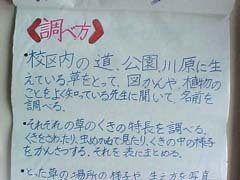 《調べ方》
・校区内の道、公園、川原に生
えている草をとって、図かんや、植物の
ことをよく知っている先生に聞いて、名前を
調べる。
・それぞれの草のくきの特長を調べる。
くきをさわったり、虫めがねで見たり、くきの中の様子
をかんさつする。それを表にまとめる。
・とった草の場所の様子や、生え方を写真